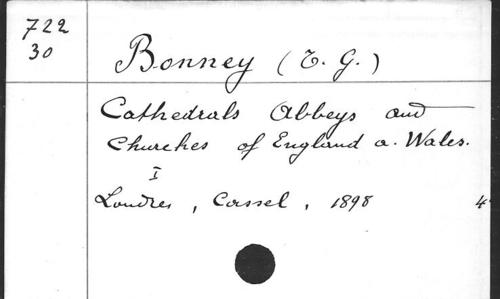 722
30
Bonney (T. G.)
Cathedrals Abbeys and
Churches of England a. Wales.
I
Londres, Cassel, 1898 4°